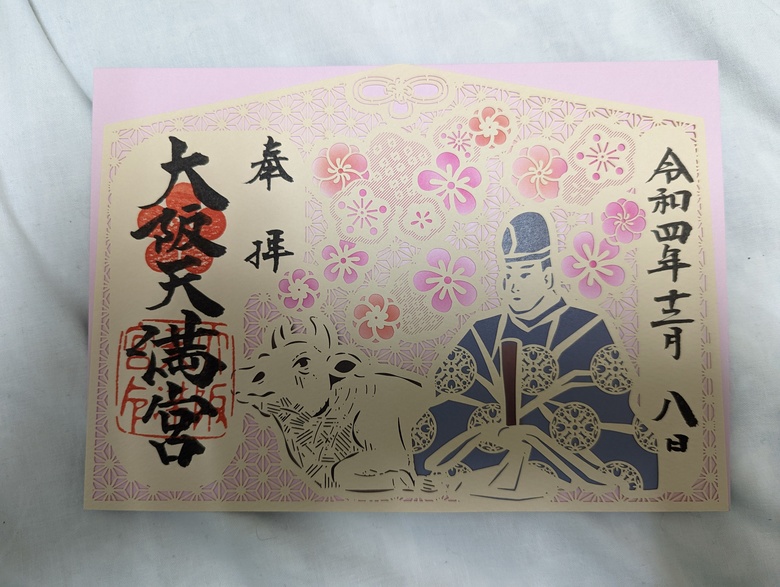 令和四年十二月八日
奉拝
大阪天満宮